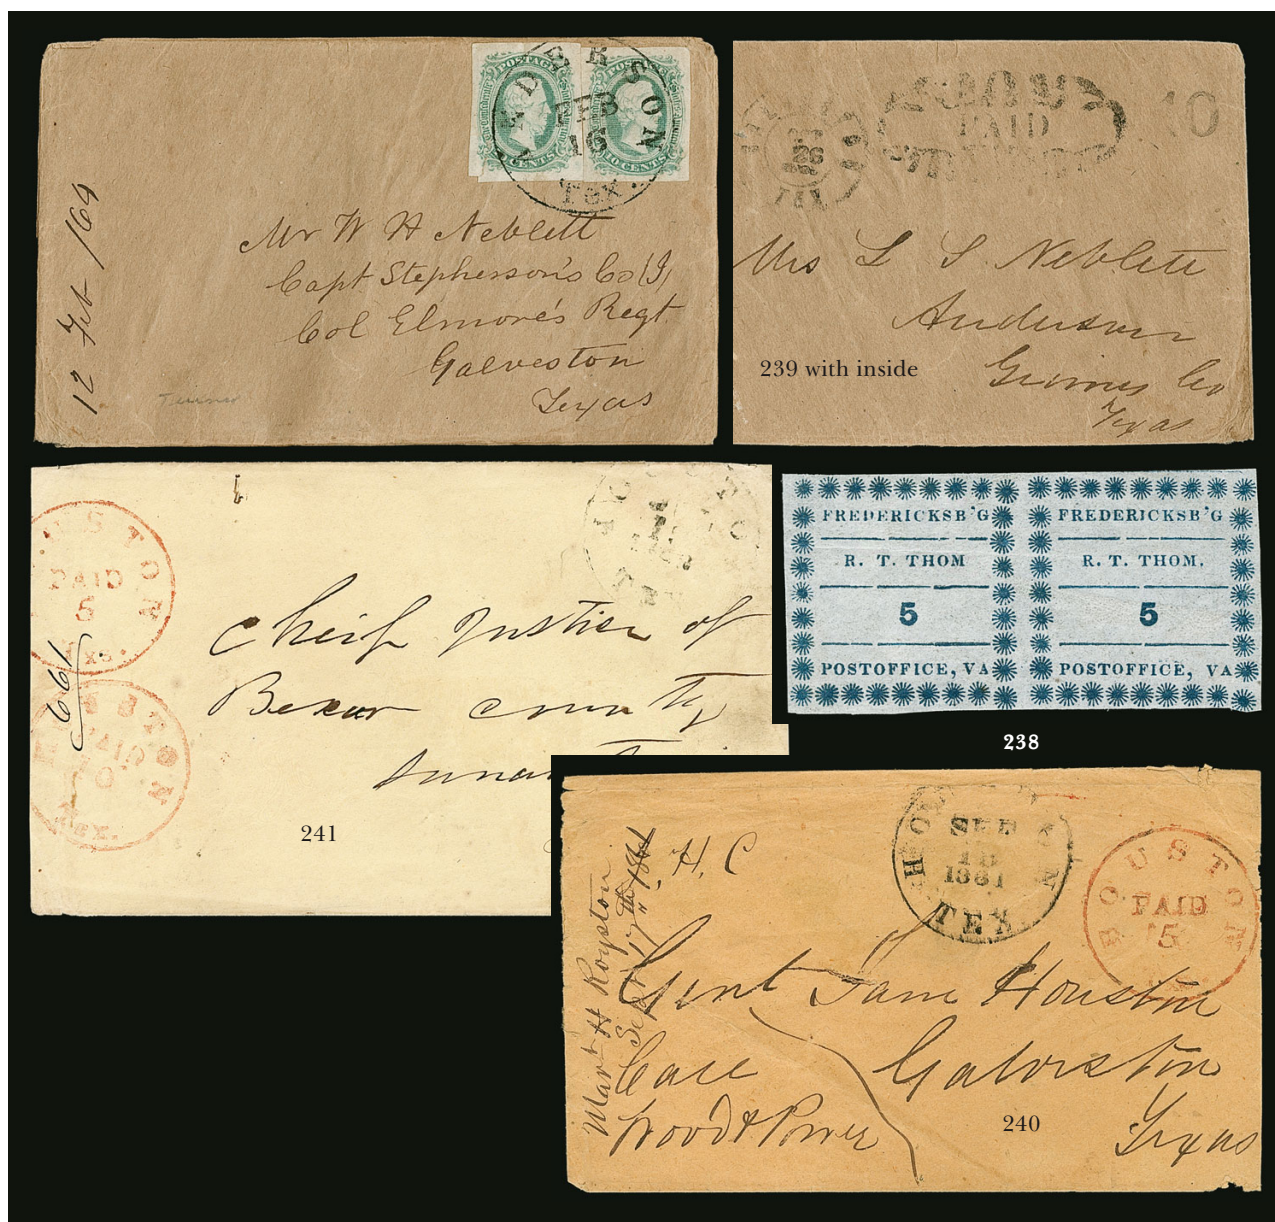 ANDERSON
FEB
16
Tex.
POSTAGE
CENTS
10 CENTS
12 Feb /64
Mr W H Neblett
Capt Stephenson's Co (I)
Col Elmore's Regt
Galveston
Texas
26
TEX
PAID
10
Mrs L S Neblett
Anderson
Grimes Co
Texas
239 with inside
HOUSTON
PAID
5
Txs.
661
HOUSTON
10
Tex.
Cheif Justice of
Bexar county
241
FREDERICKSB'G
R. T. THOM
5
POSTOFFICE, VA
FREDERICKSB'G
R. T. THOM.
5
POSTOFFICE, VA
238
HOUSTON
SEP
18
1861
TEX
HOUSTON
PAID
5
Mart H Royston
Sept 17th 1861
H, C
Gent Sam Houston
Care Galveston
Wood & Power Texas
240